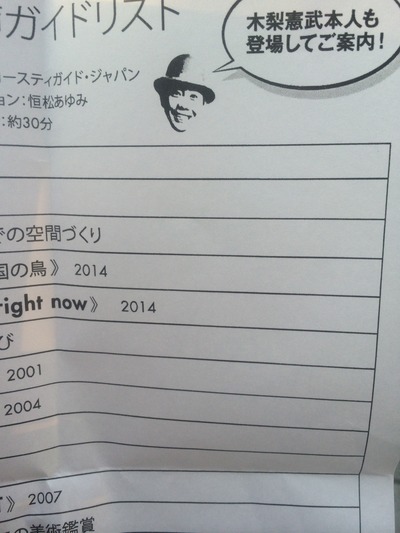 ガイドリスト
木梨憲武本人も
登場してご案内!
ースティガイド・ジャパン
ョン:恒松あゆみ
:約30分
での空間づくり
国の鳥》 2014
right now》 2014
び
2001
2004
》 2007
の美術鑑賞